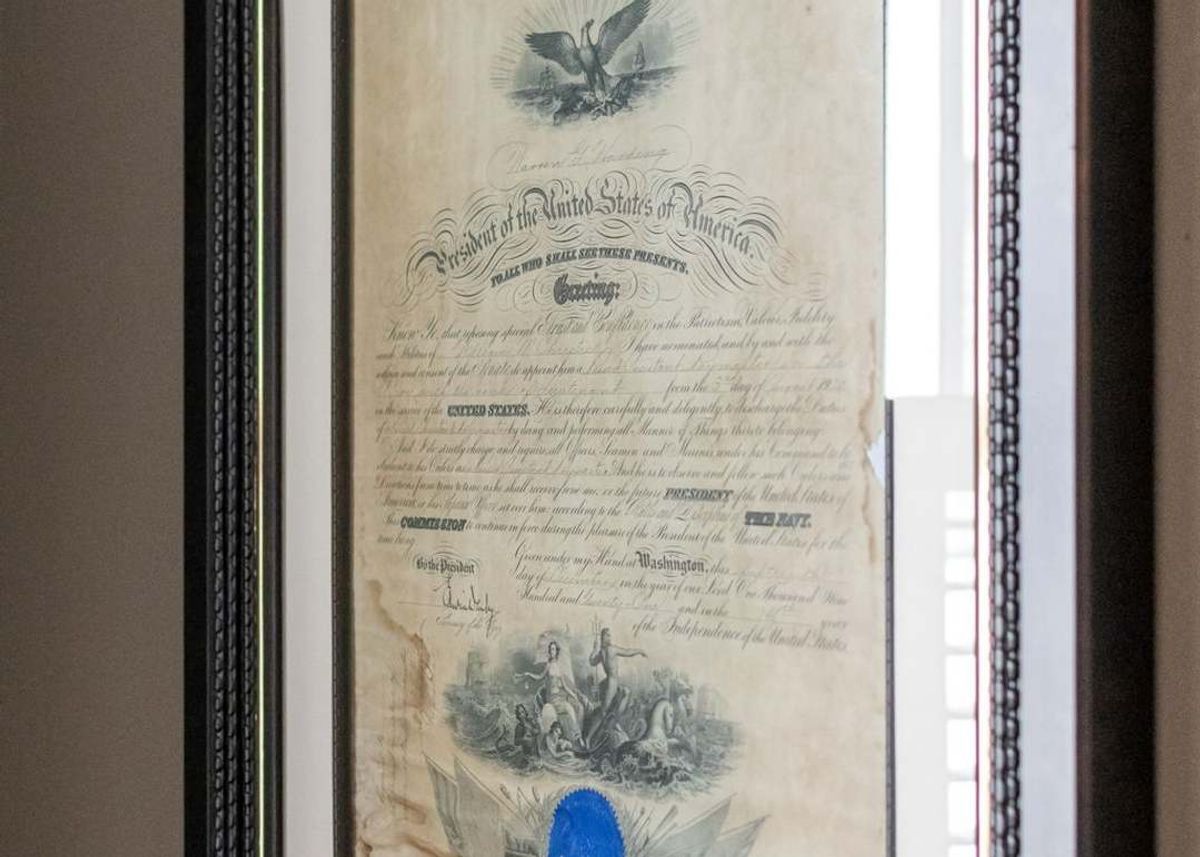 Warren G. Harding
President of the United States of America.
TO ALL WHO SHALL SEE THESE PRESENTS,
Greeting:
Know Ye, that reposing special Trust and Confidence in the Patriotism, Valour, Fidelity
and Abilities of I have nominated, and by and with the
advice and consent of the Senate, do appoint him a Assistant Paymaster in the
from the day of August
in the service of the UNITED STATES. He is therefore carefully and diligently to discharge the Duties
of by doing and performing all Manner of Things thereto belonging.
And I do strictly charge and require all Officers, Seamen and Marines under his Command to be
obedient to his Orders as And he is to observe and follow such Orders and
Directions from time to time as he shall receive from me, or the future PRESIDENT of the United States of
America, or his Superior Officer set over him, according to the Rules and Discipline of THE NAVY.
This COMMISSION to continue in force during the pleasure of the President of the United States for the
time being.
Given under my Hand at Washington, this
By the President
day of in the year of our Lord One Thousand Nine
Hundred and Twenty-One and in the year
Secretary of the Navy
of the Independence of the United States.